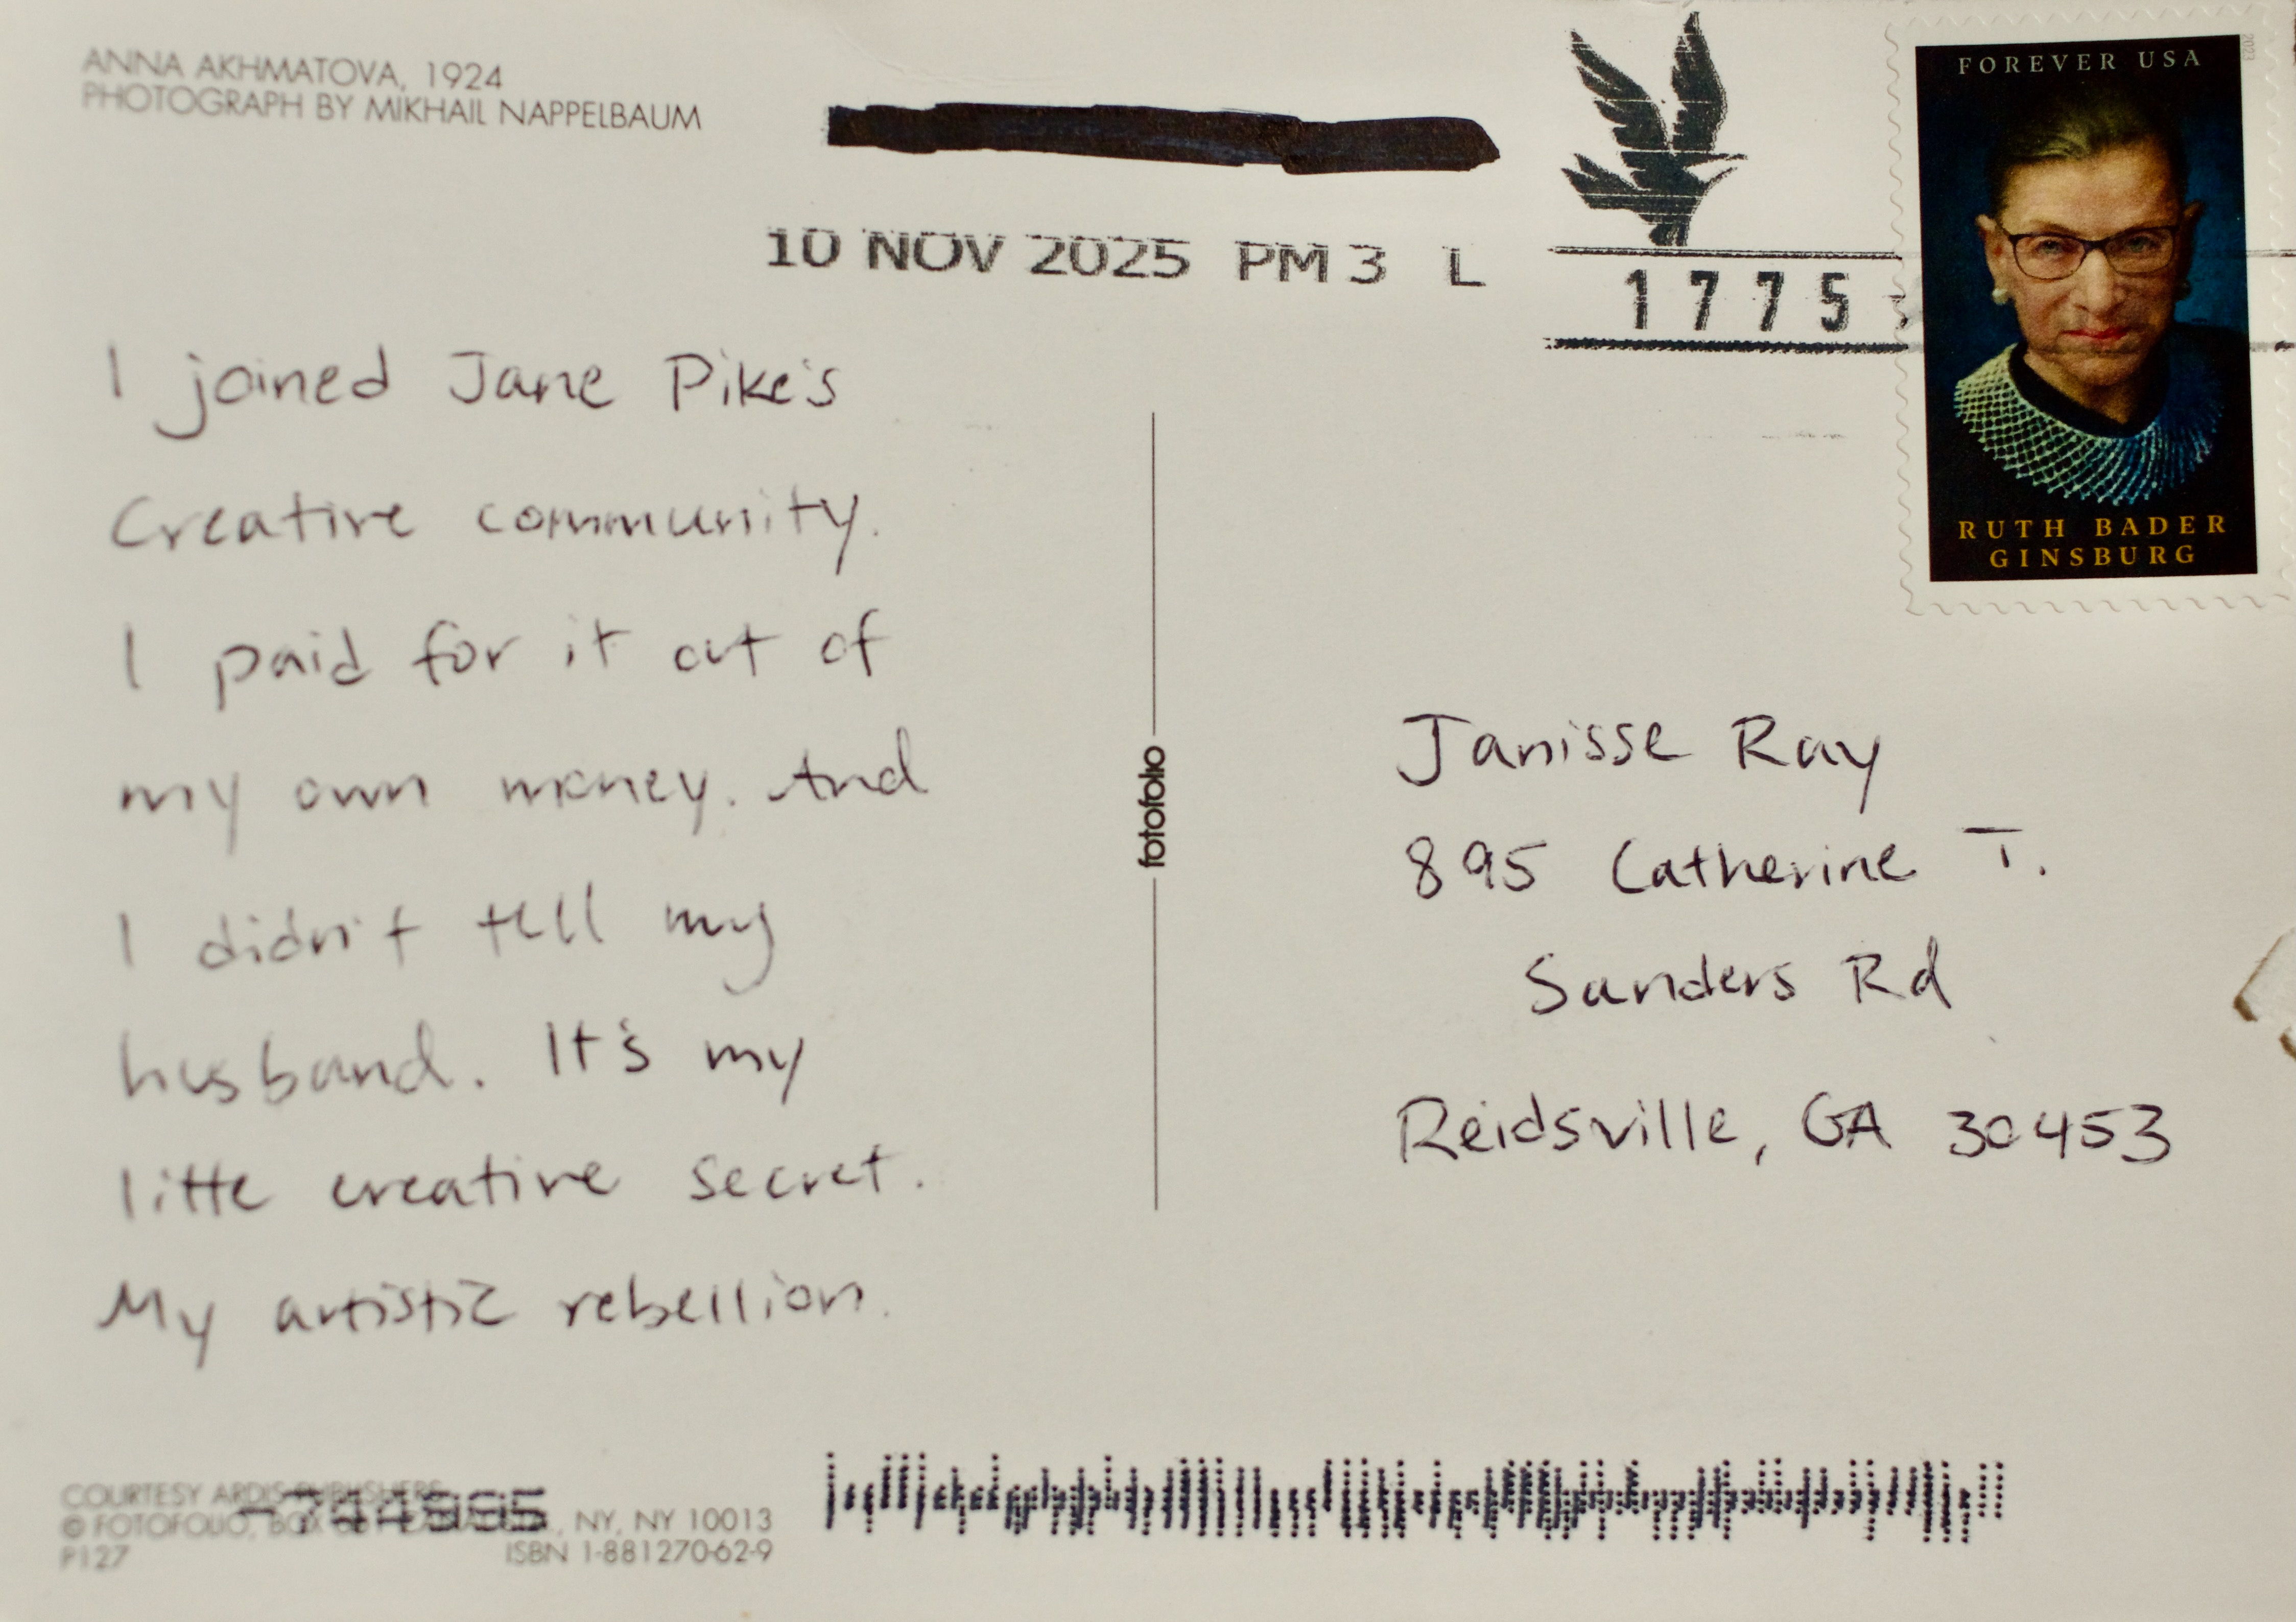 ANNA AKHMATOVA, 1924
PHOTOGRAPH BY MIKHAIL NAPPELBAUM
10 NOV 2025 PM 3 L
1775
FOREVER USA
2023
RUTH BADER
GINSBURG
I joined Jane Pike's
Creative community.
I paid for it out of
my own money. And
I didn't tell my
husband. It's my
little creative secret.
My artistic rebellion.
fotofolio
Janisse Ray
895 Catherine T.
Sanders Rd
Reidsville, GA 30453
COURTESY ARDIS PUBLISHERS
744995
© FOTOFOLIO, BOX NY, NY 10013
P127
ISBN 1-881270-62-9